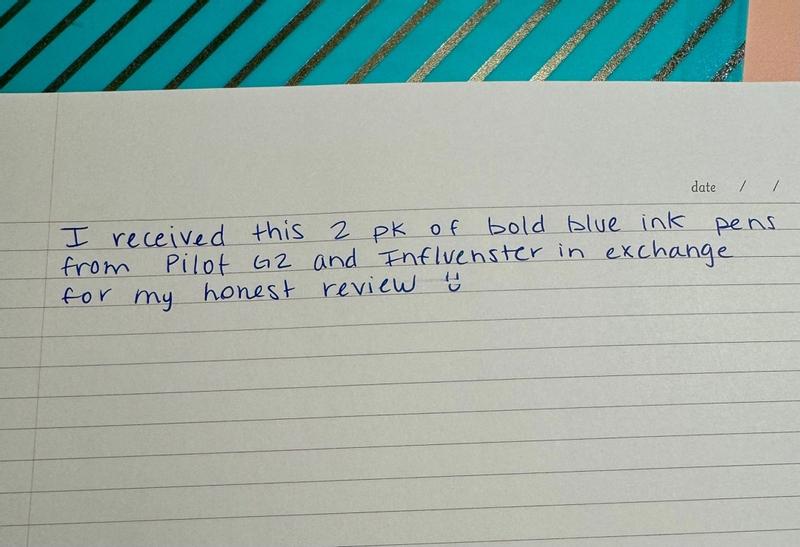 date / /
I received this 2 pk of bold blue ink pens
from Pilot G2 and Influenster in exchange
for my honest review :)